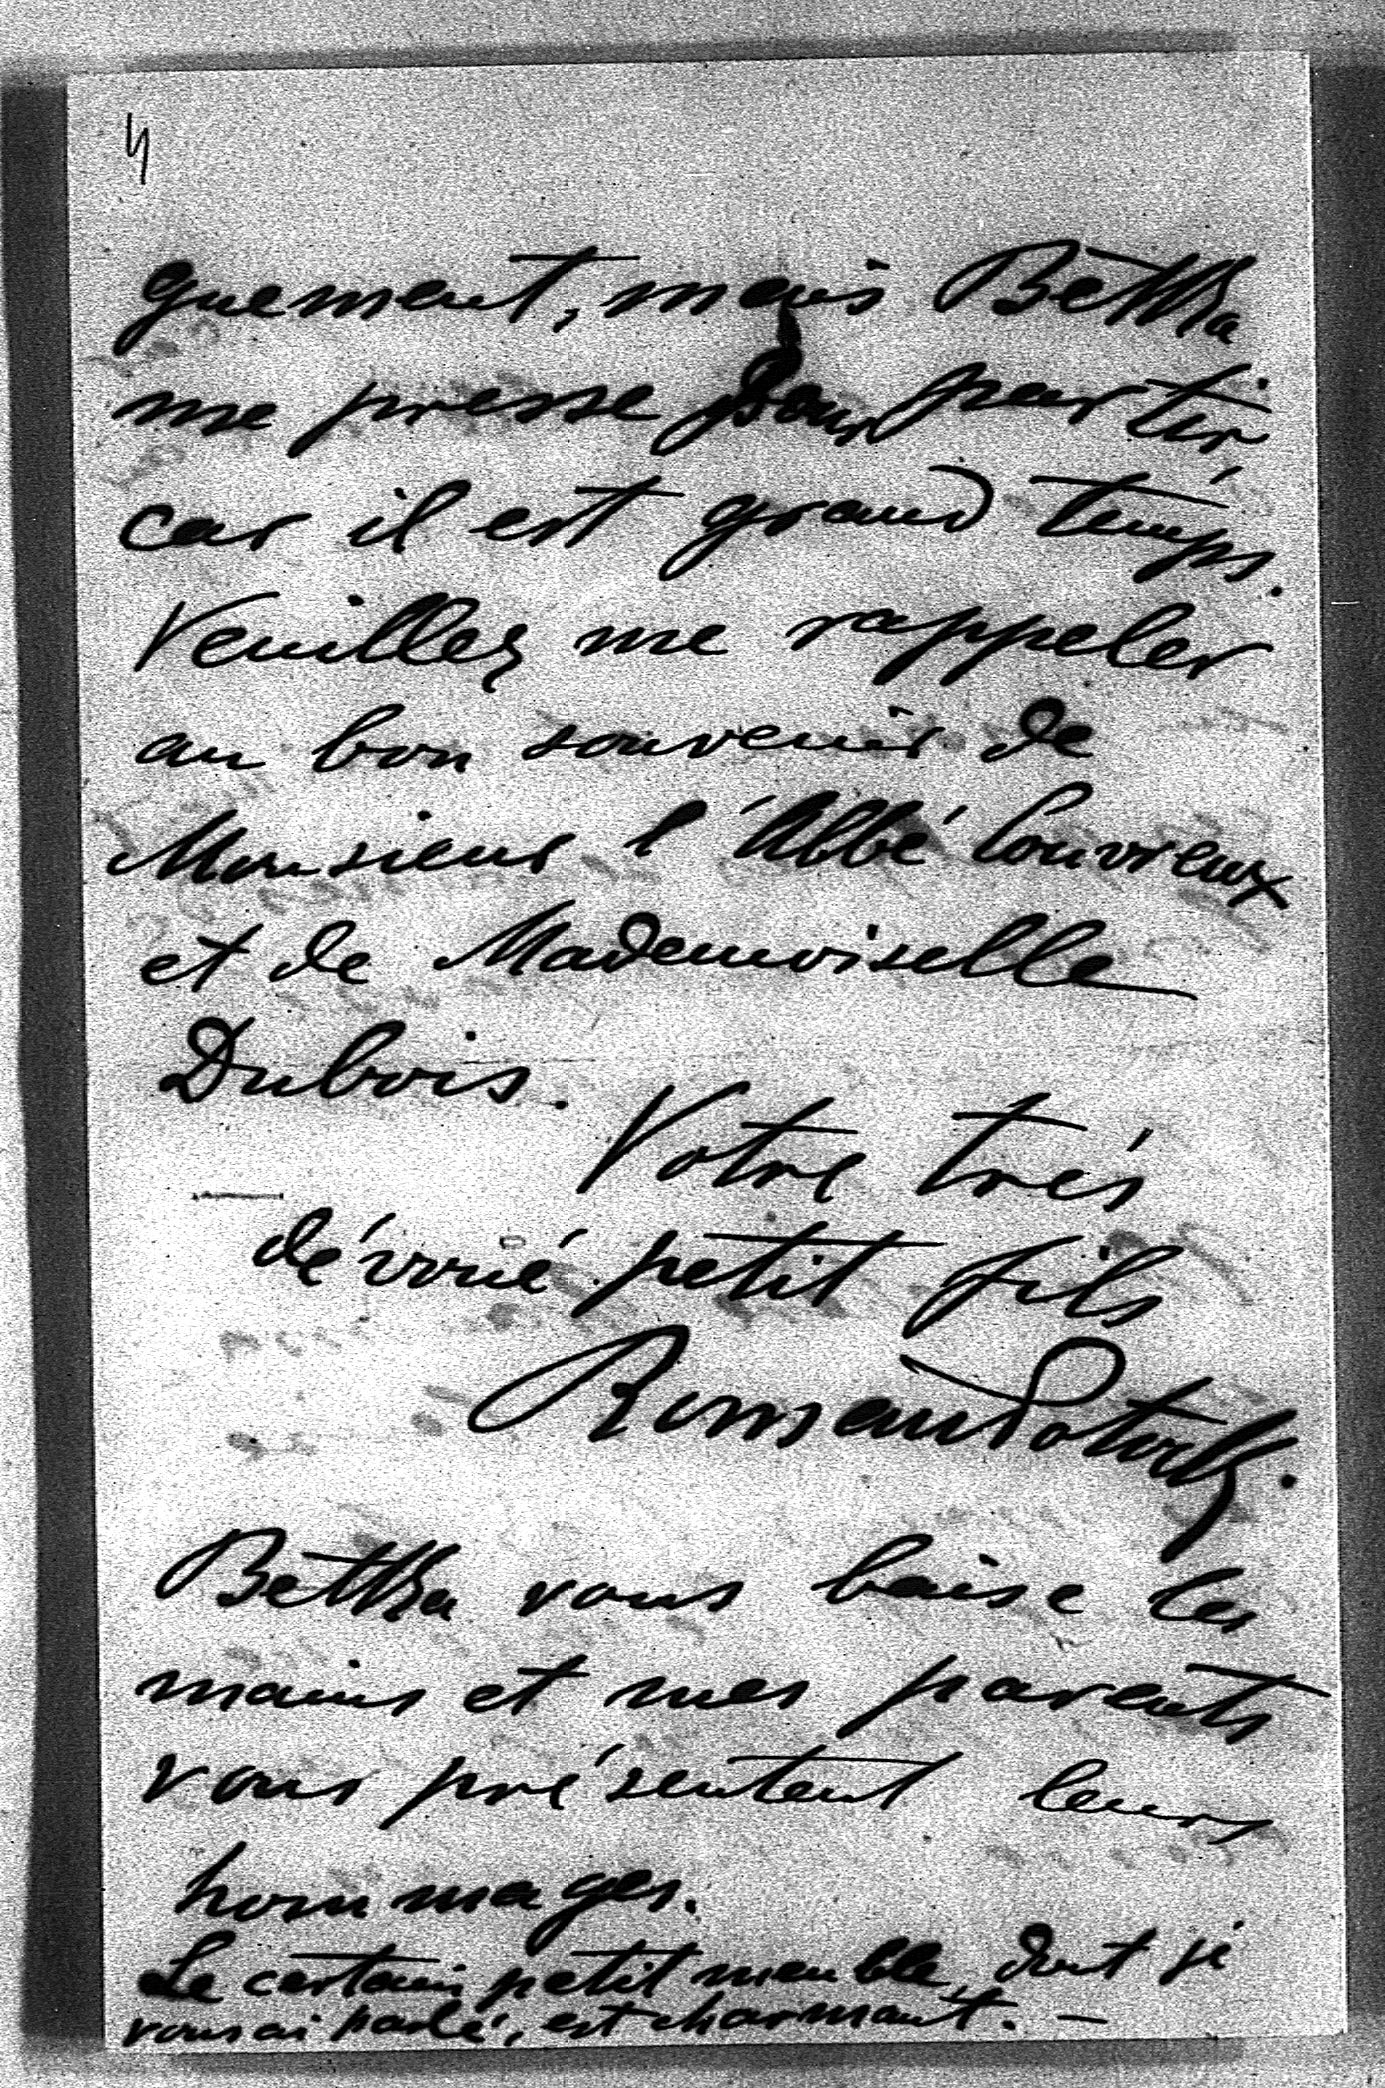 4
guement, mais Betka
me presse pour partir
car il est grand temps.
Veuillez me rappeler
au bon souvenir de
Monsieur l'Abbé Couvreux
et de Mademoiselle
Dubois.
Votre très
dévoué petit fils
Roman Potocki.
Betka vous baise les
mains et mes parents
vous présentent leurs
hommages.
Le certain petit meuble, dont je
vous ai parlé, est charmant. —